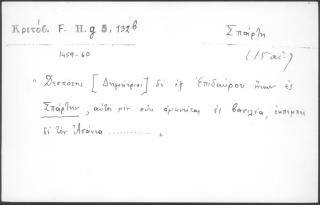 Κριτόβ. F. H. g 5, 132b
Σπάρτη
1459-60
(15 αἰ.)
" Δεσποτης [Δημήτριος] δὲ ἐξ Ἐπιδαύρου ἥκων ἐς
Σπάρτην, αὐτὸς μὲν οὐκ ἀφικνεῖται ἐς βασιλέα, ἐκπέμπει
δὲ τὸν Ἀσάνια ............ „